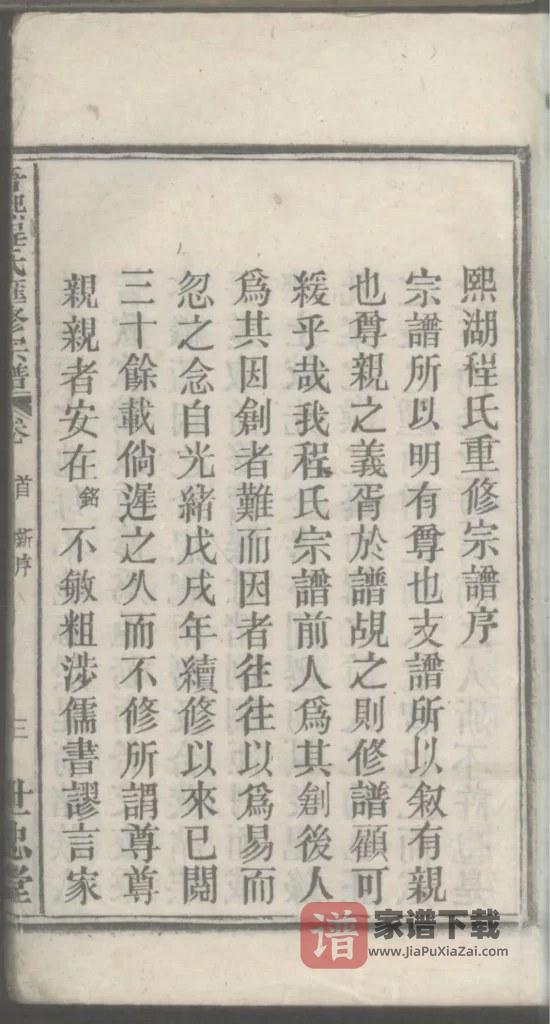 熙湖程氏重修宗譜序
宗譜所以明有尊也支譜所以敘有親
也尊親之義胥於譜覘之則修譜顧可
緩乎哉我程氏宗譜前人爲其創後人
爲其因創者難而因者往往以爲易而
忽之念自光緒戊戌年續修以來已閱
三十餘載倘遲之久而不修所謂尊尊
親親者安在銘不敏粗涉儒書謬言家
熙程氏匯修宗譜 卷首 新序 三 世忠堂
谱 家谱下载
www.JiaPuXiaZai.com